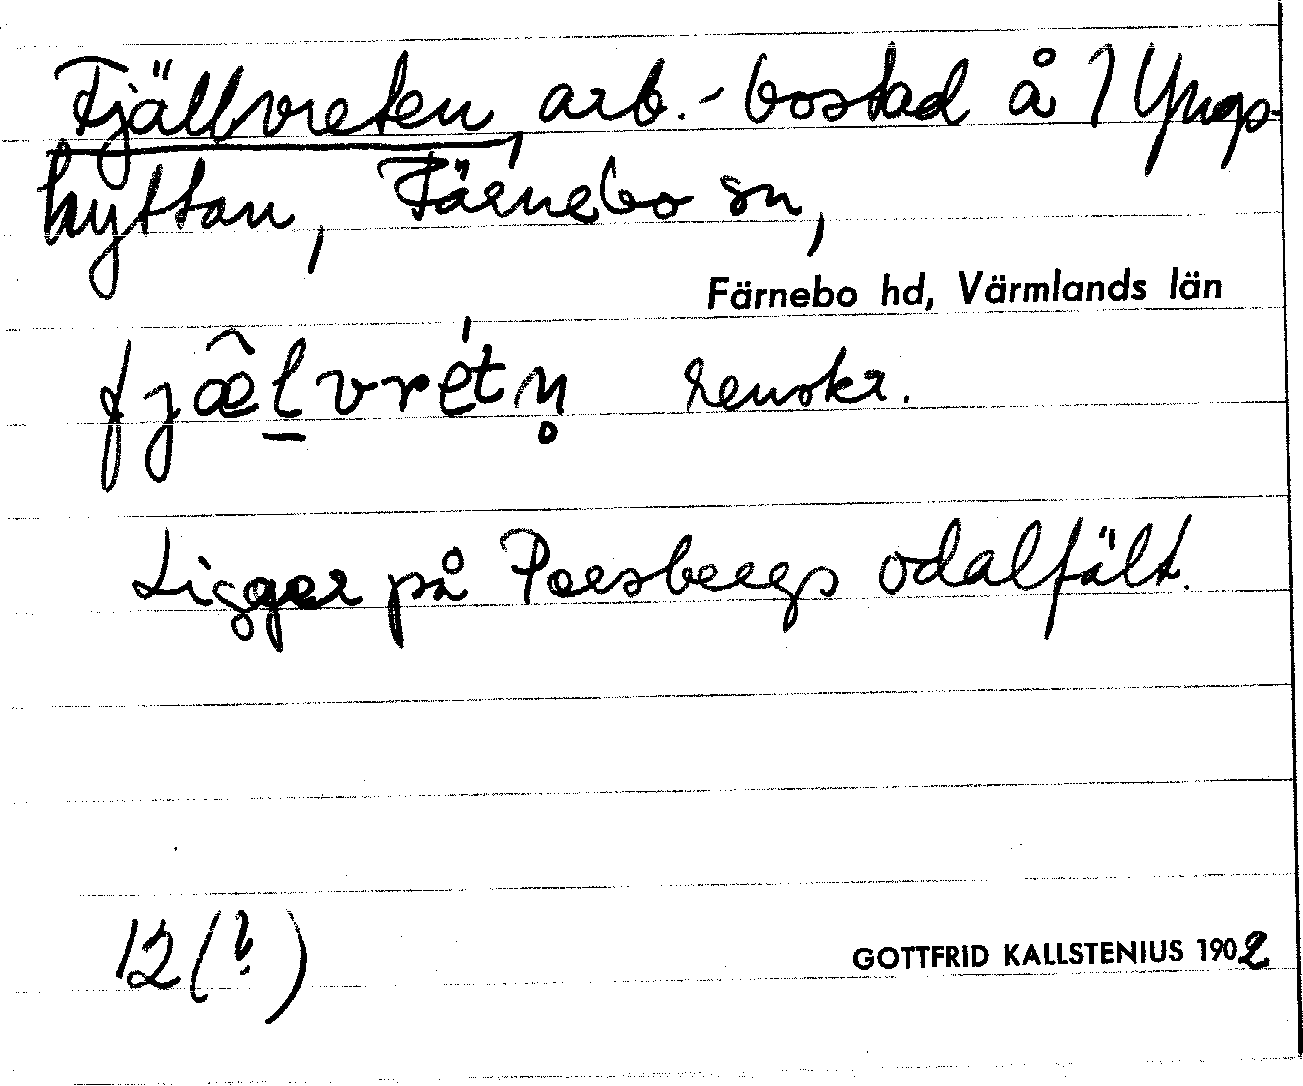 Fjällvreten, arb.-bostad å 1 Yngs-
hyttan, Färnebo sn,
Färnebo hd, Värmlands län
fjæ̂l̠vrétn̥ renskr.
Ligger på Persbergs odalfält.
12(?)
GOTTFRID KALLSTENIUS 1902